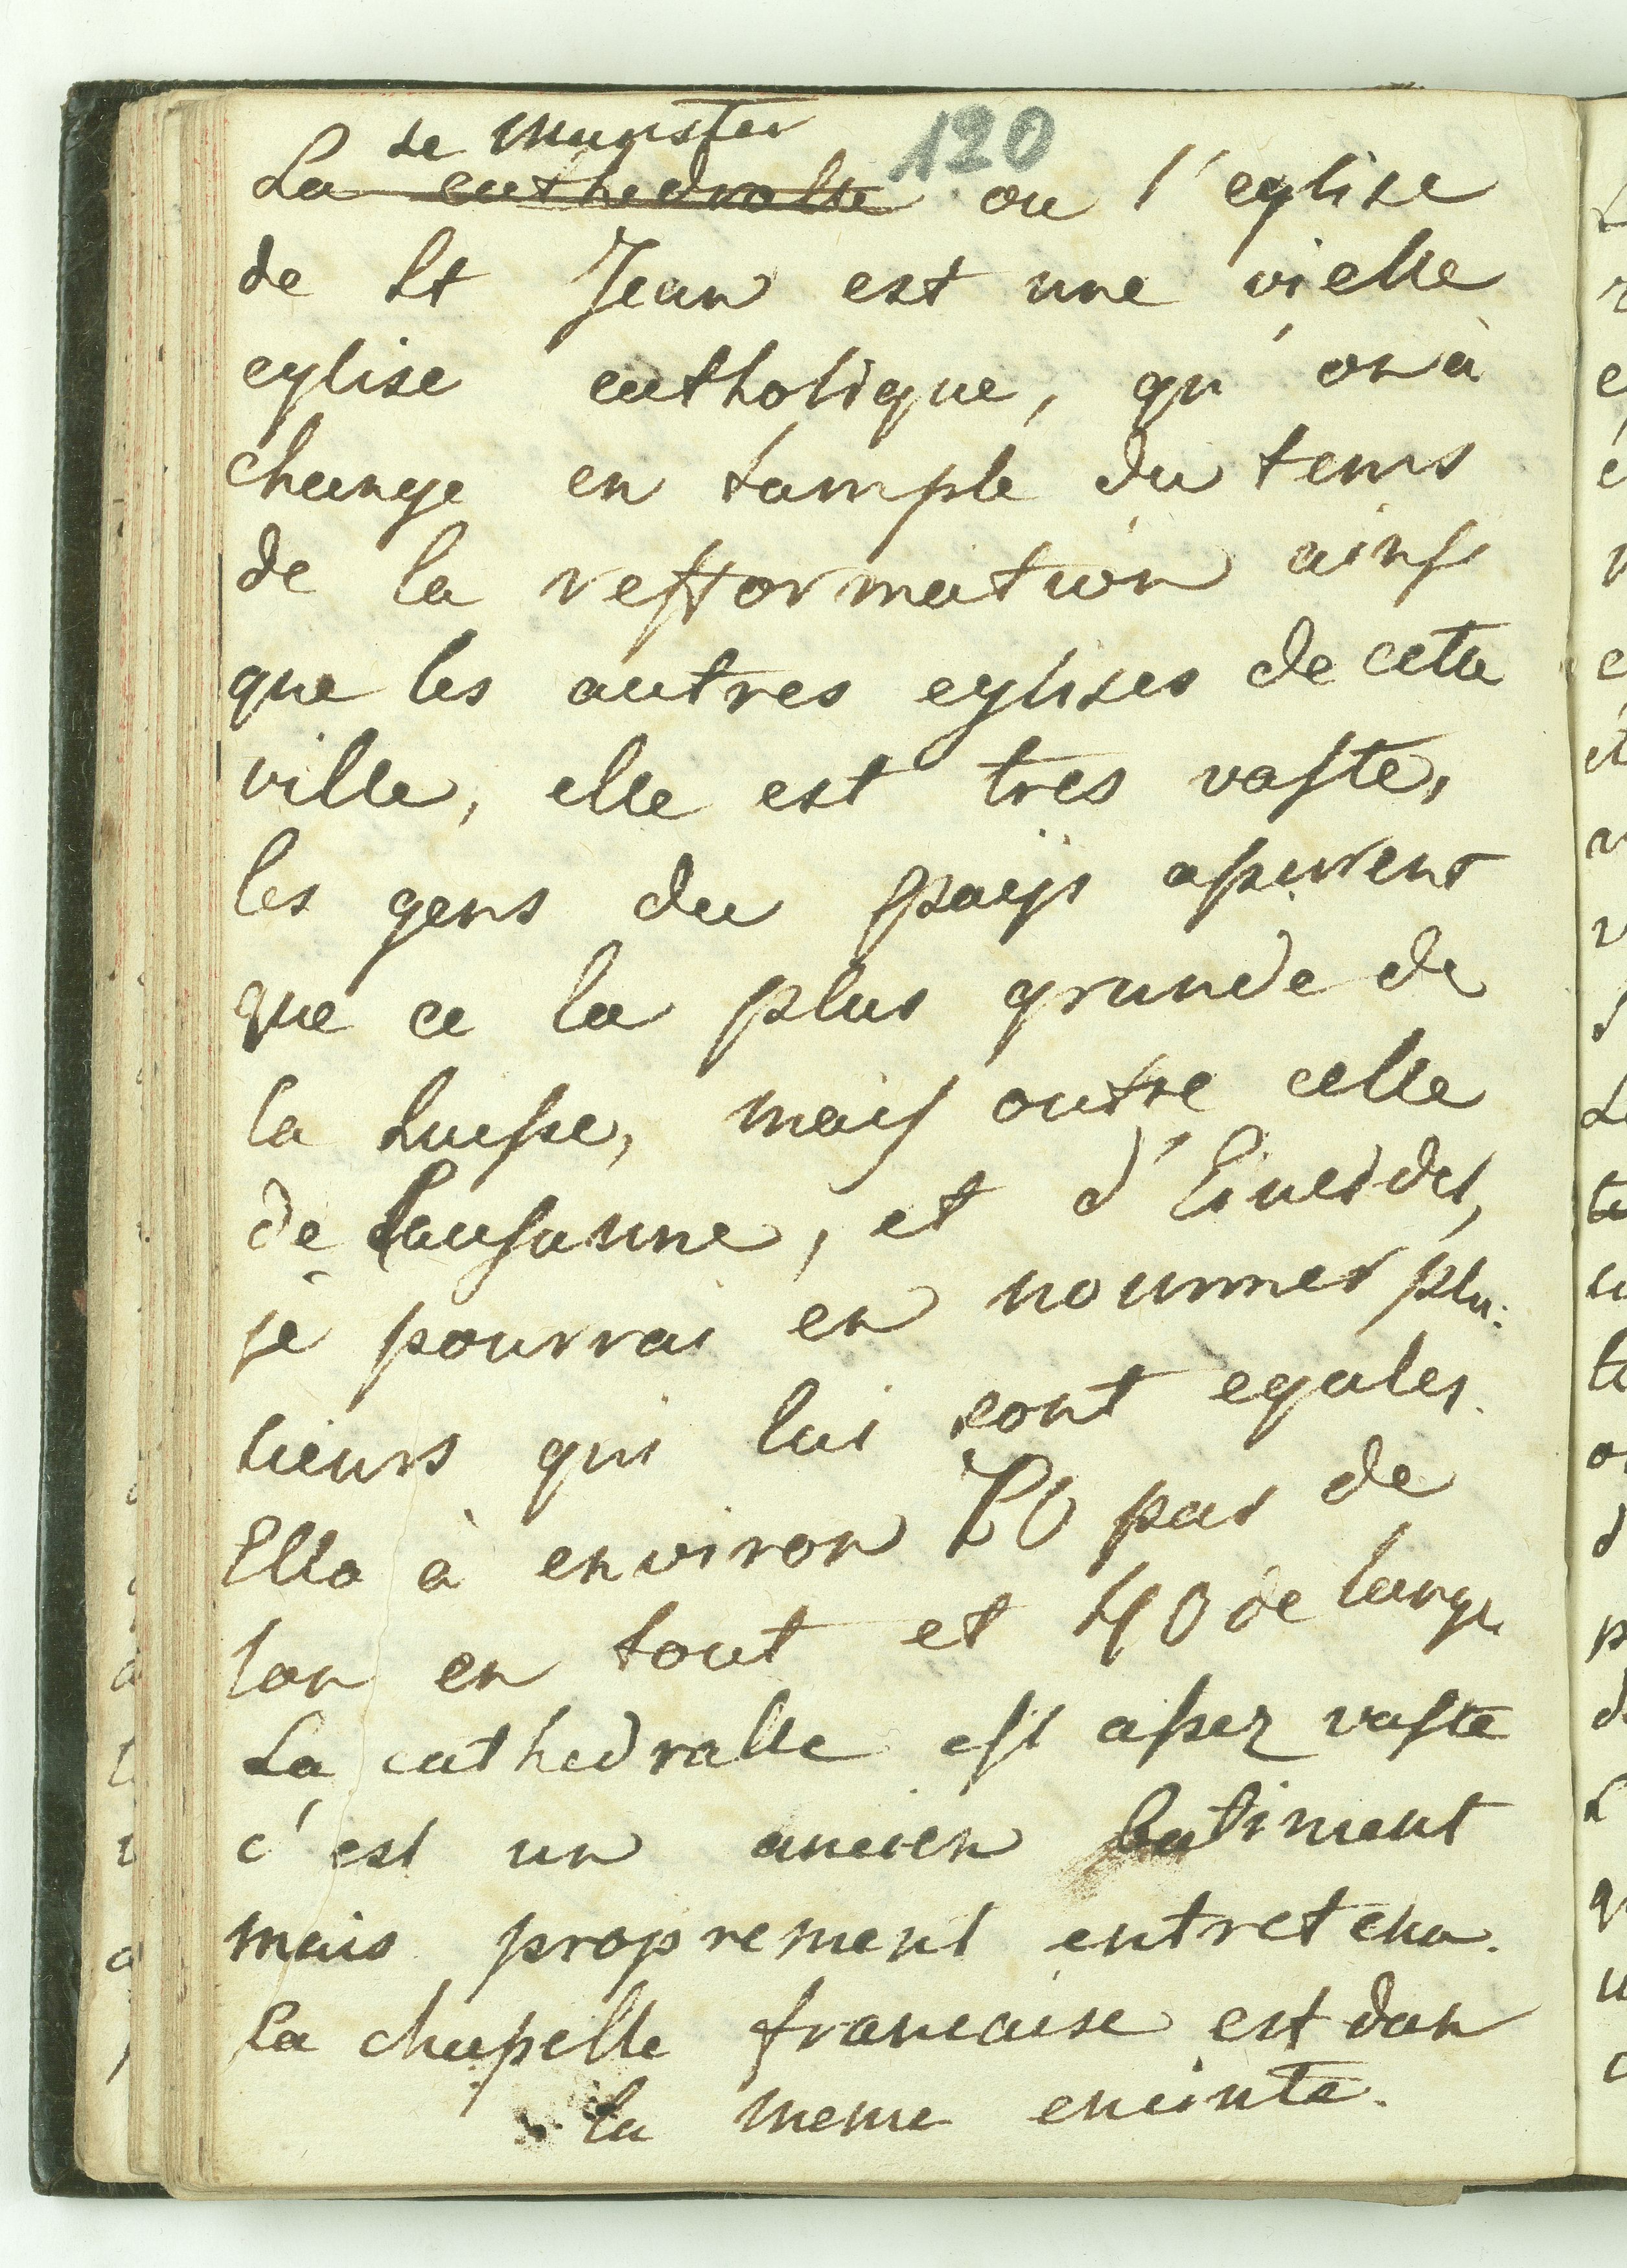 120
de Munster
La cathedralle ou l'eglise
de St Jean est une vielle
eglise catholique, qu'on à
change en tample du tems
de la refformation ainsi
que les autres eglises de cette
ville, elle est tres vaste,
les gens du païs assurent
que ce la plus grande de
la Suisse, mais outre celle
de Lausanne, et
je pourrai en nommer plu:
sieurs qui lui sont egales.
Elle à environ pas de
lon en tout et 40 de large
La cathedralle est assez vaste
c'est un ancien batiment
mais proprement entretenu.
La chapelle francaise est dan
la meme enceinte.